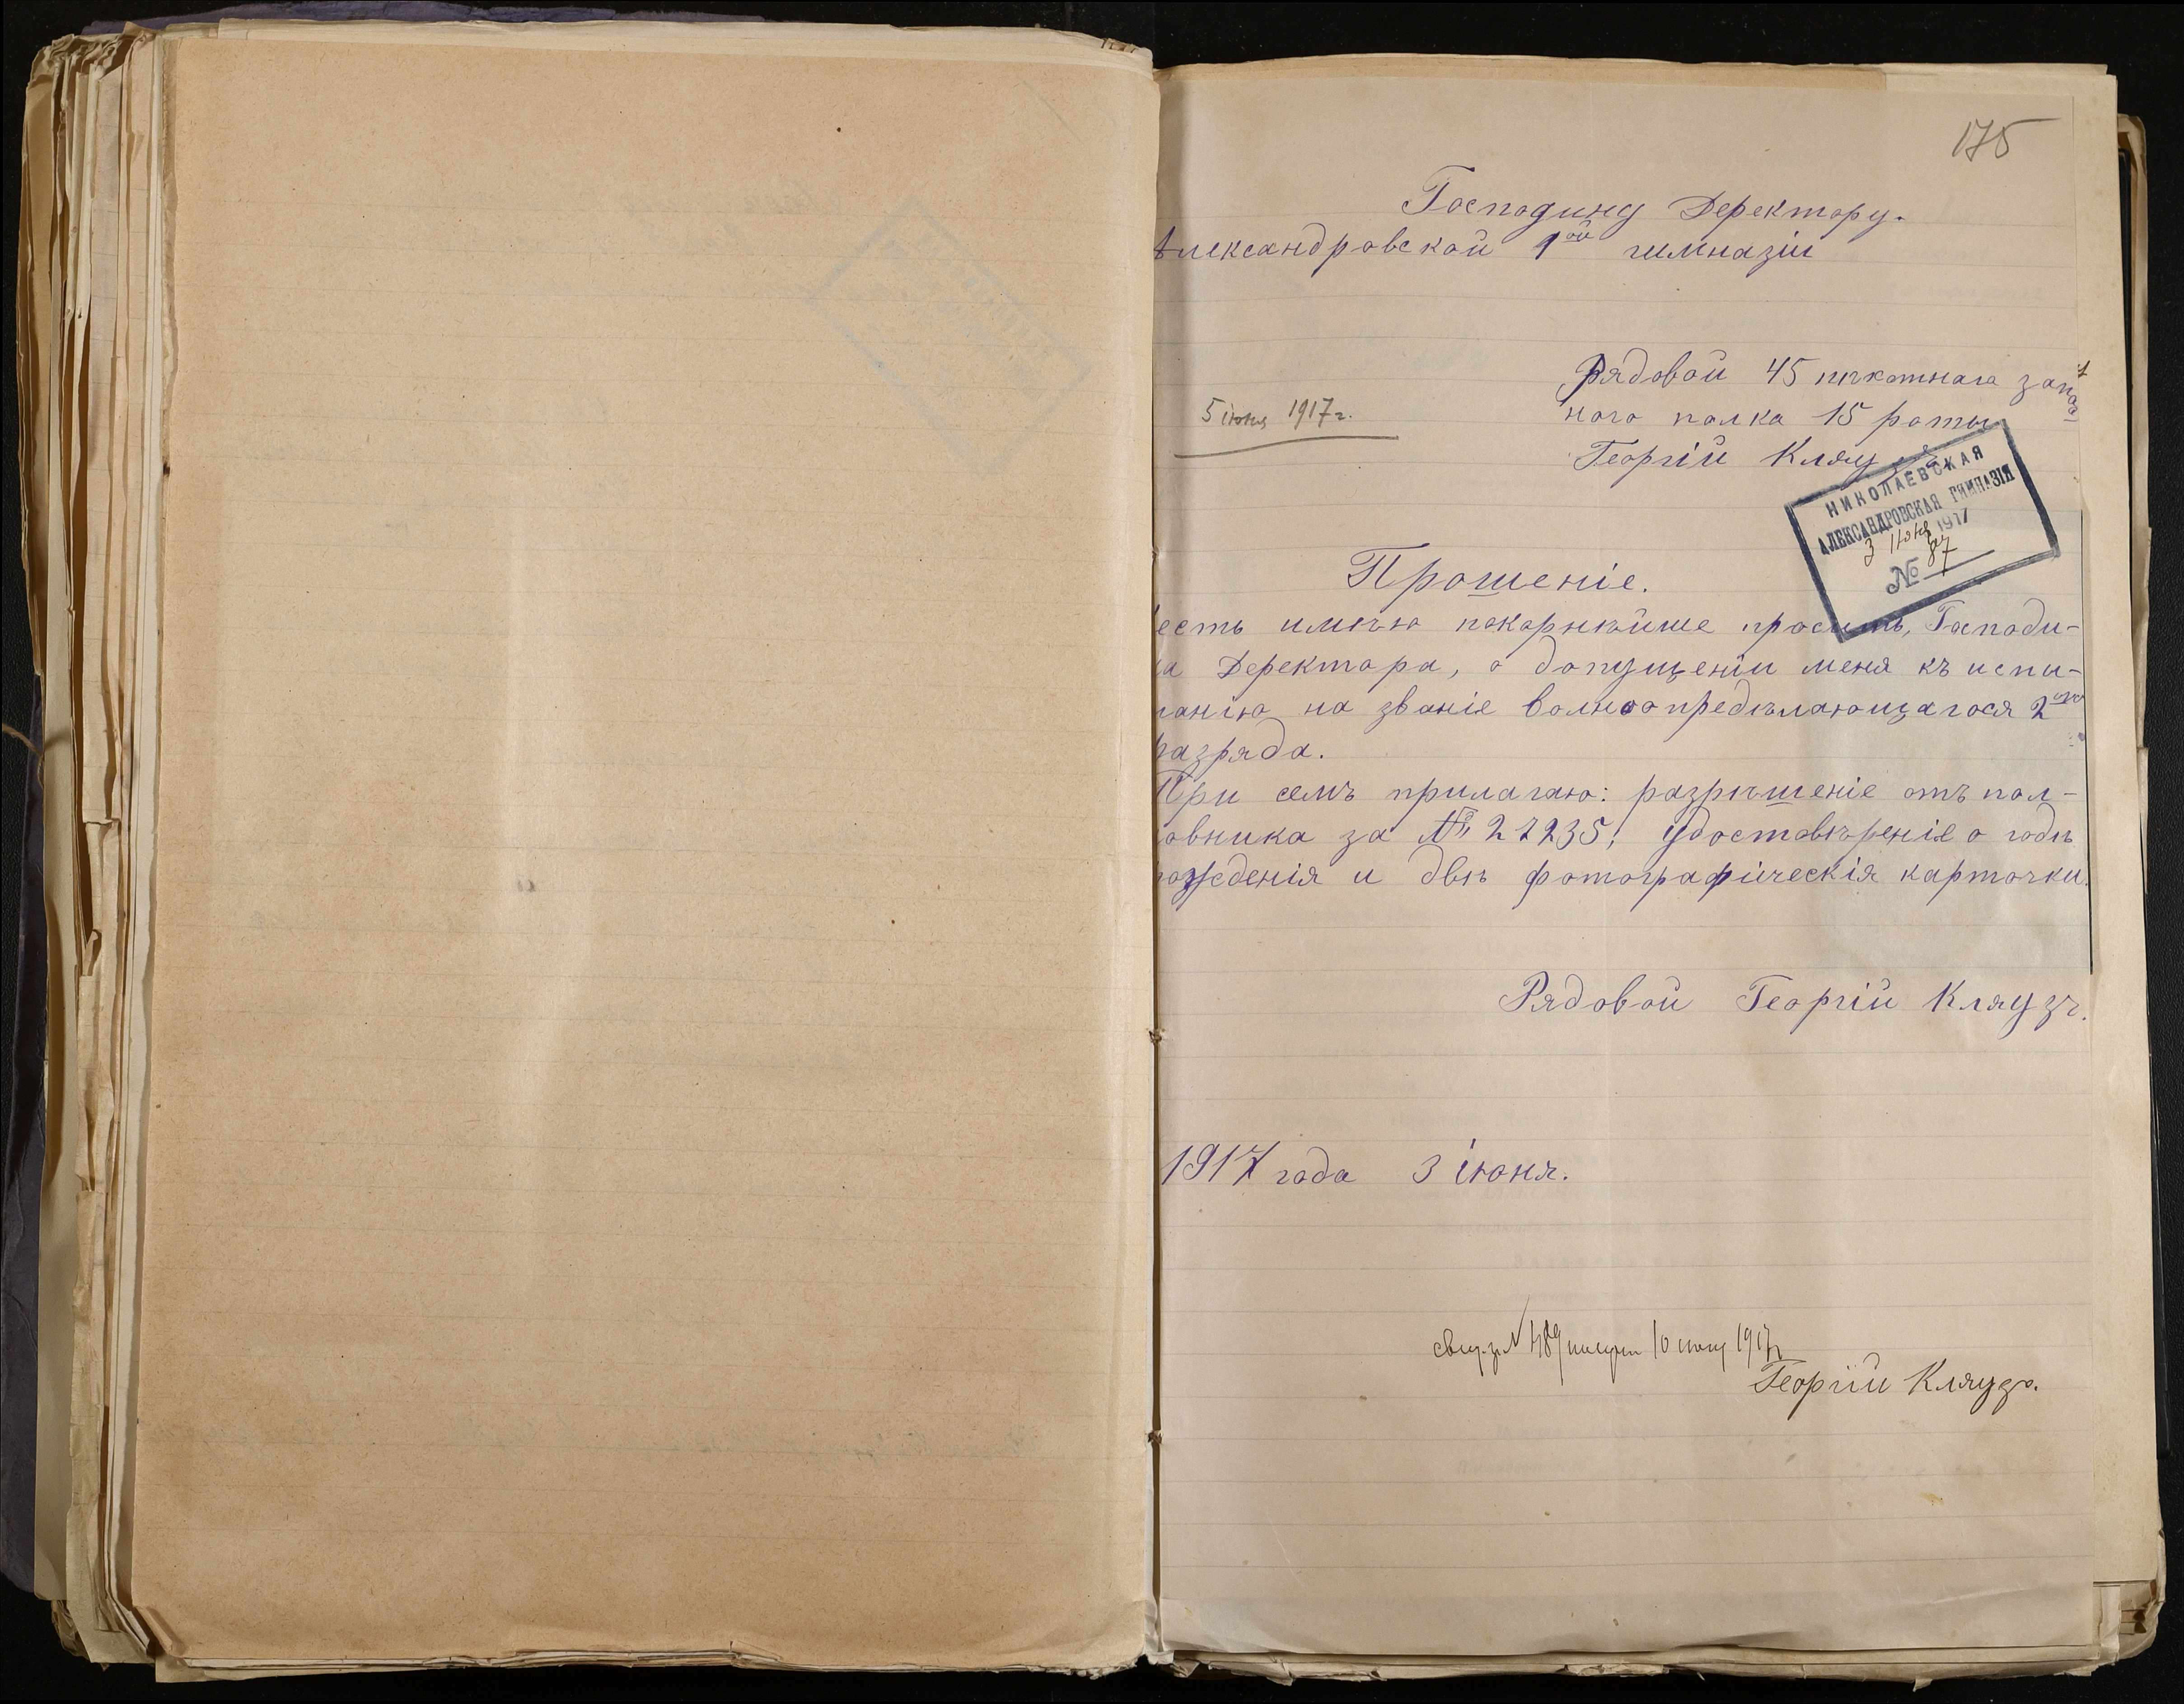 175
Господину Деректору.
Александровской 1ой гимназіи
Рядовой 45 пѣхотнаго запас-
наго полка 15 роты
5 іюня 1917 г.
Георгій Кляузъ
НИКОЛАЕВСКАЯ
АЛЕКСАНДРОВСКАЯ ГИМНАЗІЯ
3 іюня 1917
№ 87
Прошеніе.
есть имѣю покорнѣйше просить, Господи-
на Деректора, о допущеніи меня къ испы-
танію на званіе волноопредѣляющагося 2го
разряда.
При семъ прилагаю: разрѣшеніе отъ пол-
овника за № 27235; удостовѣреніе о годѣ
рожденія и двѣ фотографическія карточки.
Рядовой Георгій Кляузъ.
1917 года 3 іюня.
489 10 1917
Георгій Кляузъ.